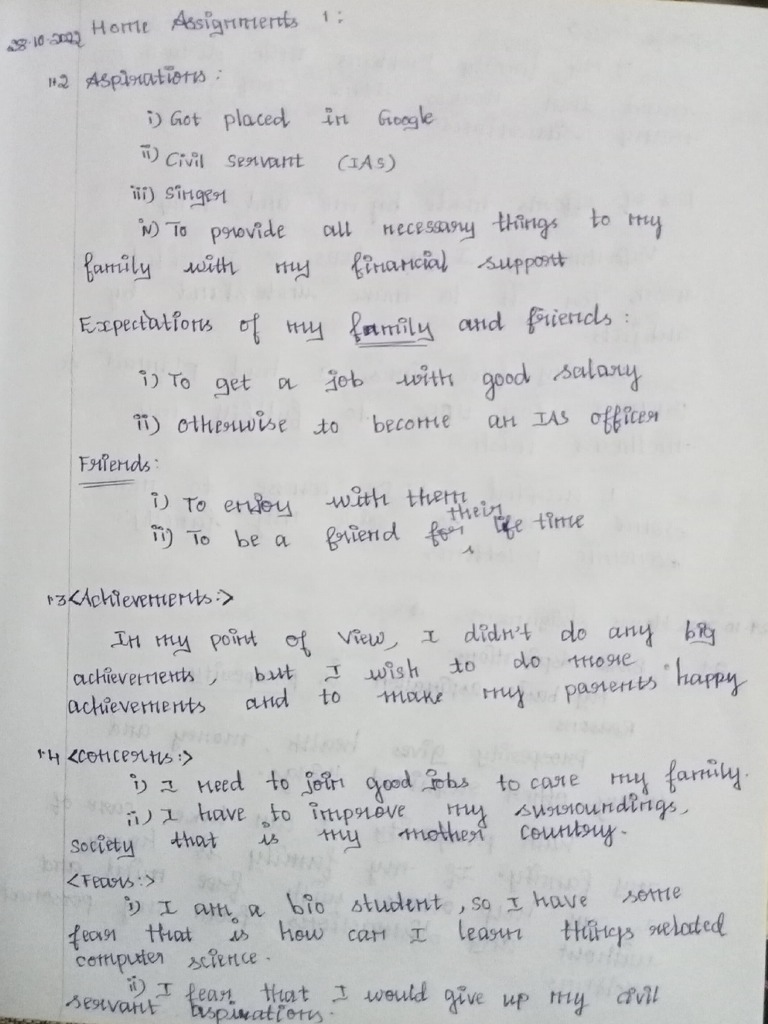 28.10.2022 Home Assignments 1:
1.2 Aspirations:
i) Got placed in Google
ii) Civil Servant (IAS)
iii) Singer
iv) To provide all necessary things to my
family with my financial support
Expectations of my family and friends:
i) To get a job with good salary
ii) otherwise to become an IAS officer
Friends:
i) To enjoy with them
ii) To be a friend for their life time
1.3 <Achievements:>
In my point of view, I didn't do any big
achievements, but I wish to do more
achievements and to make my parents happy
1.4 <Concerns:>
i) I need to join good jobs to care my family.
ii) I have to improve my surroundings,
society that is my mother country.
<Fears:>
i) I am a bio student, so I have some
fear that is how can I learn things related
computer science.
ii) I fear that I would give up my civil
servant aspirations.